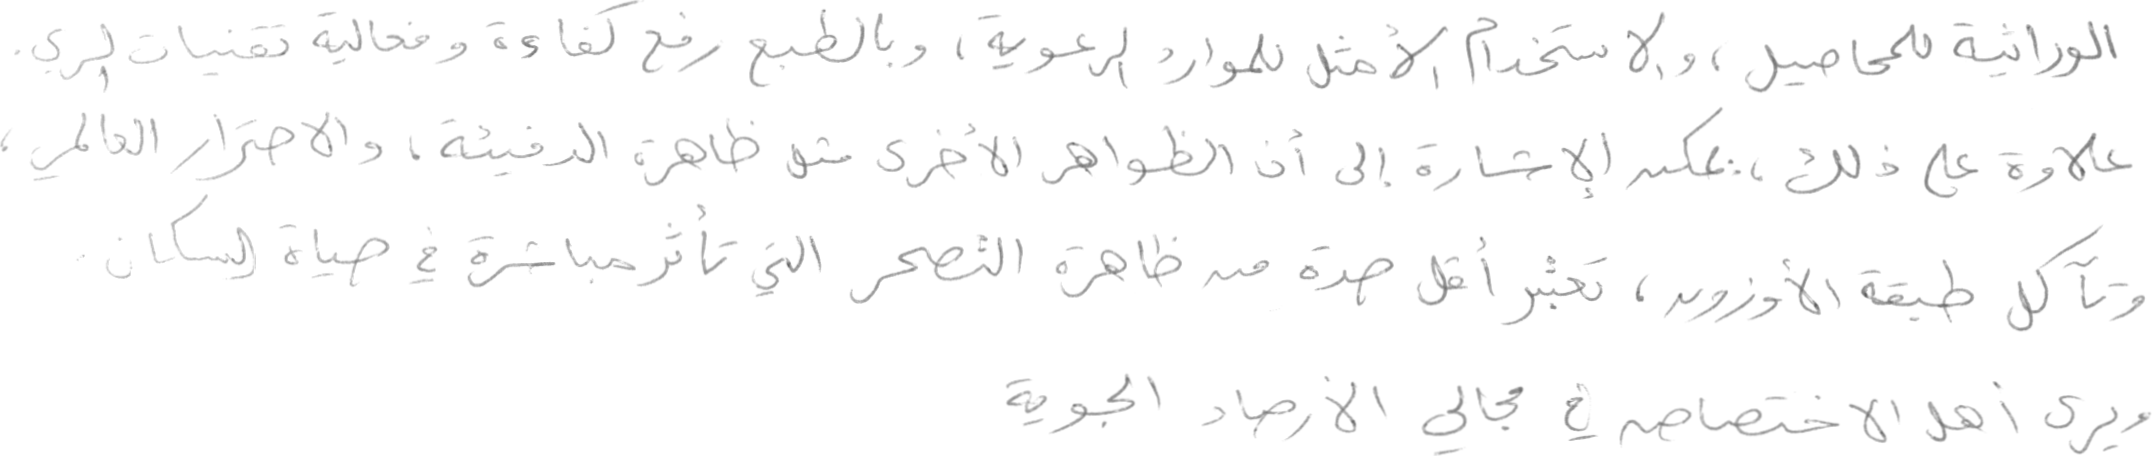 الوراثية للمحاصيل، والاستخدام الأمثل للموارد الرعوية، وبالطبع رفع كفاءة وفعالية تقنيات الري.
علاوة على ذلك، يمكن الإشارة إلى أن الظواهر الأخرى مثل ظاهرة الدفيئة، والاحترار العالمي،
وتآكل طبقة الأوزون، تعتبر أقل حدة من ظاهرة التصحر التي تأثر مباشرة في حياة السكان.
ويرى أهل الاختصاص في مجالي الأرصاد الجوية